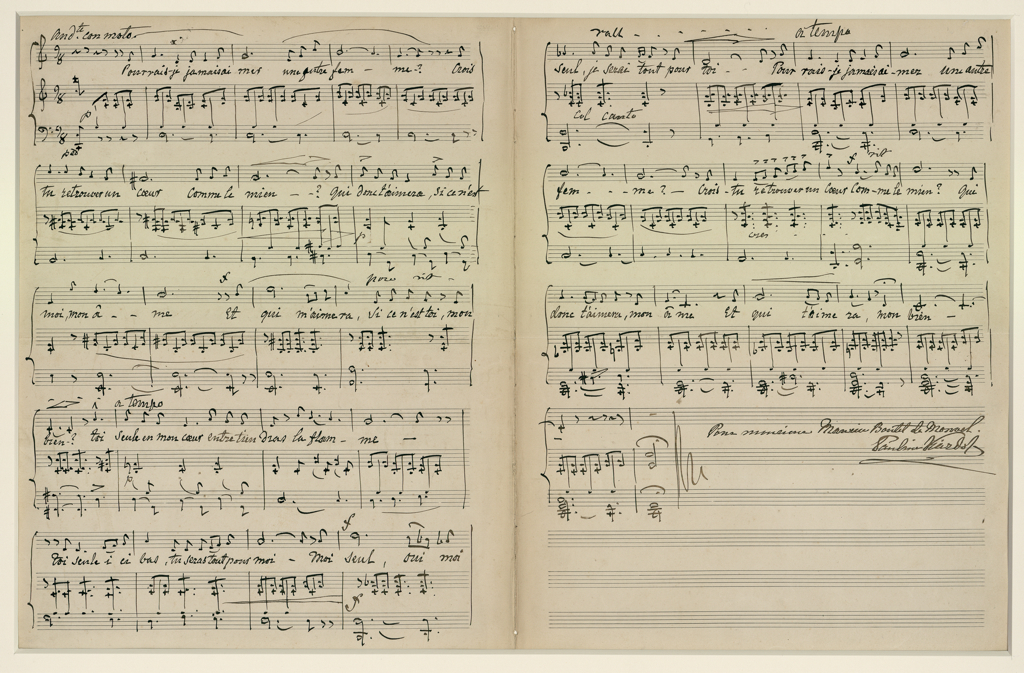 And.te con moto.
Pourrais-je jamais ai mer une autre fem - me? Crois
tu retrouver un Cœur Comme le mien - - ? Qui donc t'aimera, Si ce n'est
poco rit -
moi, mon â - - me Et qui m'aimera, Si ce n'est toi, mon
a tempo
bien? toi Seule en mon cœur entretien Dras la flam - me -
toi Seule i ci bas, tu seras tout pour moi - Moi Seul, oui moi
rall - - - - - a tempo
Seul, je serai tout pour toi - - Pour rais-je jamais ai - mer une autre
col canto
rit
fem - - - me? - Crois - tu retrouver un Cœur Com - me le mien? Qui
cres
donc t'aimera, mon â me Et qui t'aime ra, mon bien -
Pour monsieur Maurice Boutet de Monvel.
Pauline Viardot